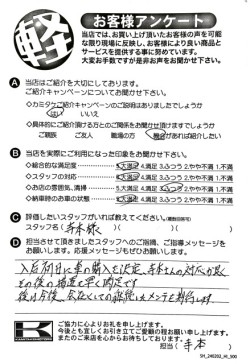 軽
お客様アンケート
当店では、お買い上げ頂いたお客様の声を可能
な限り現場に反映し、お客様により良い商品と
サービスを提供する事に努めています。
大変お手数ですが是非お声をお聞かせ下さい。
A 当店はご紹介を大切にしております。
ご紹介キャンペーンについてお聞かせ下さい。
◇カミタケご紹介キャンペーンのご説明はありましたでしょうか
はい いいえ
◇具体的にご紹介頂ける方との関係をお聞かせ頂けますでしょうか
ご親族 ご友人 職場の方 機会があれば紹介したい
B 当店を実際にご利用になった印象をお聞かせ下さい。
◇総合的な満足度 5.大満足 4.満足 3.ふつう 2.やや不満 1.不満
◇スタッフの対応 5.大満足 4.満足 3.ふつう 2.やや不満 1.不満
◇お店の雰囲気、清掃 5.大満足 4.満足 3.ふつう 2.やや不満 1.不満
◇納車時のお車の状態 5.大満足 4.満足 3.ふつう 2.やや不満 1.不満
C 評価したいスタッフがいれば教えてください。(複数回答可)
スタッフ名( 寺本様 )( )( )
D 担当させて頂きましたスタッフへのご指導、ご指導メッセージを
お願いします。応援メッセージもお待ちしております。
入店初日に車の購入を決定、寺本さんの対応が良く
その後の
後は今後、
ご協力に心よりお礼を申し上げます。
今後とも宜しくお引き立てご愛顧の程お願い申し上げます。
またのご来店を心からお待ちしております。
担当( 寺本 )
SH_240202_H5_300